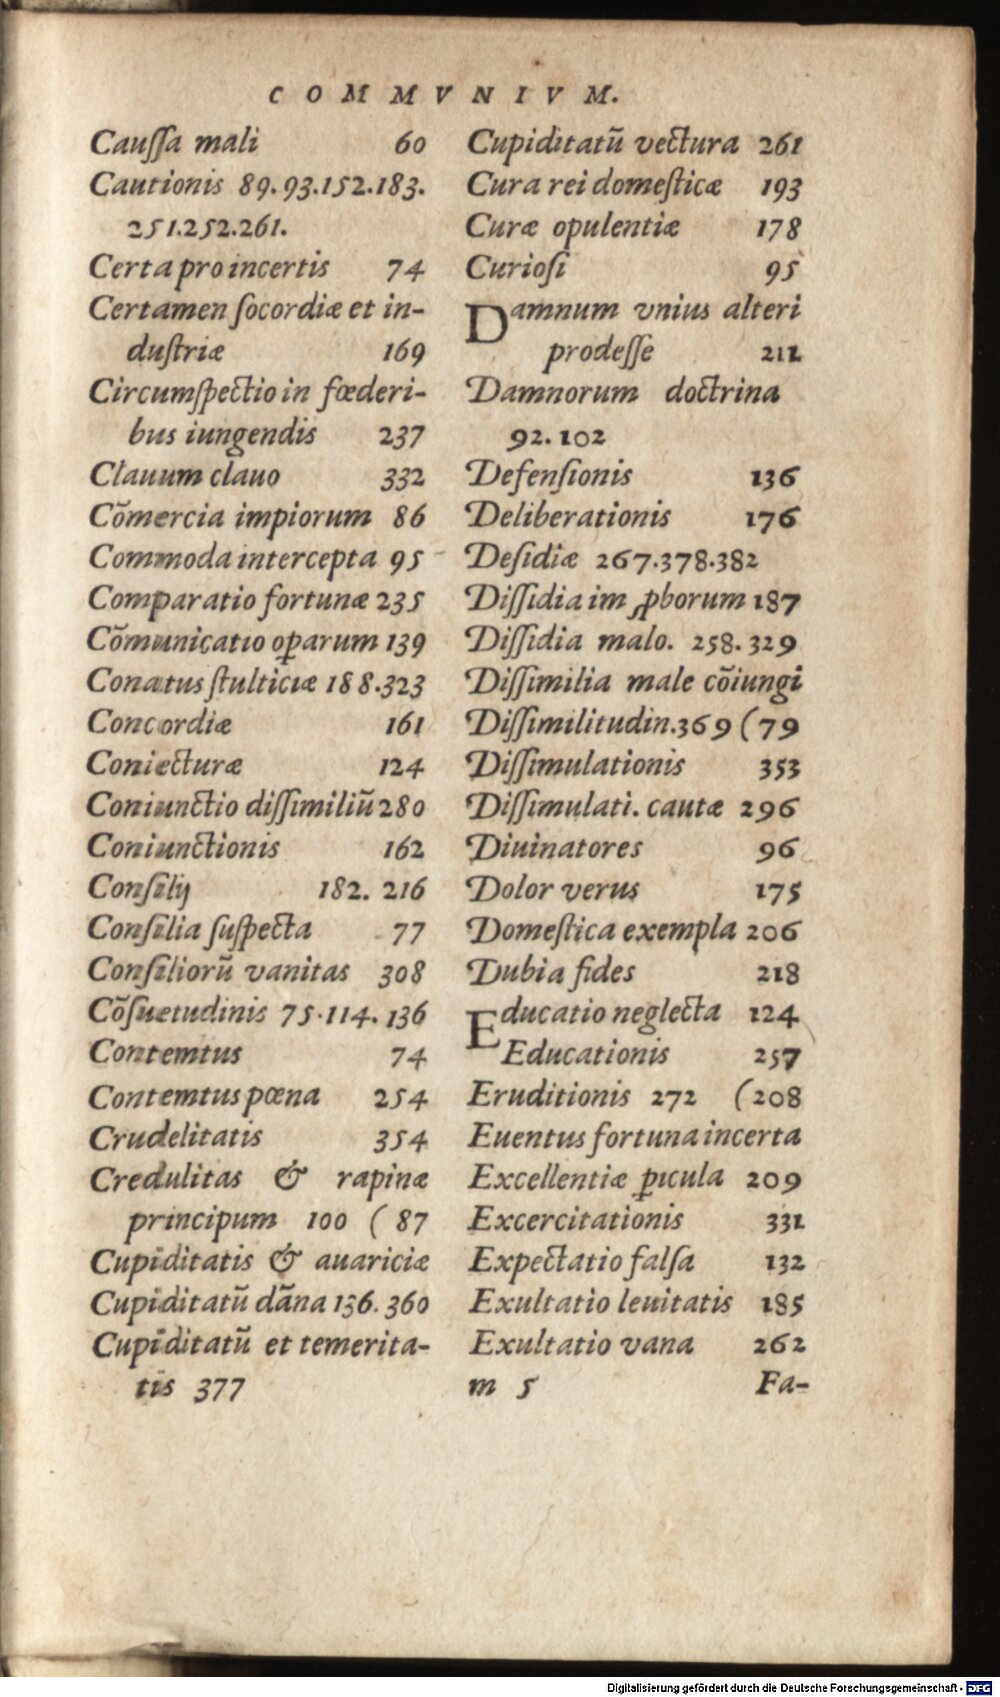 COMMVNIVM.
Cauſſa mali 60
Cautionis 89. 93. 152. 183.
251. 252. 261.
Certa pro incertis 74
Certamen ſocordiæ et in-
duſtriæ 169
Circumſpectio in fœderi-
bus iungendis 237
Clauum clauo 332
Cōmercia impiorum 86
Commoda intercepta 95
Comparatio fortunæ 235
Cōmunicatio oꝑarum 139
Conatus ſtulticiæ 188. 323
Concordiæ 161
Coniecturæ 124
Coniunctio diſſimiliū 280
Coniunctionis 162
Conſilij 182. 216
Conſilia ſuſpecta 77
Conſiliorū vanitas 308
Cōſuetudinis 75. 114. 136
Contemtus 74
Contemtus pœna 254
Crudelitatis 354
Credulitas & rapinæ
principum 100 ( 87
Cupiditatis & auariciæ
Cupiditatū dāna 136. 360
Cupiditatū et temerita-
tis 377
Cupiditatū vectura 261
Cura rei domeſticæ 193
Curæ opulentiæ 178
Curioſi 95
Damnum vnius alteri
prodeſſe 211
Damnorum doctrina
92. 102
Defenſionis 136
Deliberationis 176
Deſidiæ 267. 378. 382
Diſſidia im ꝓborum 187
Diſſidia malo. 258. 329
Diſſimilia male cōiungi
Diſſimilitudin. 369 ( 79
Diſſimulationis 353
Diſſimulati. cautæ 296
Diuinatores 96
Dolor verus 175
Domeſtica exempla 206
Dubia fides 218
Educatio neglecta 124
Educationis 257
Eruditionis 272 ( 208
Euentus fortuna incerta
Excellentiæ ꝑicula 209
Excercitationis 331
Expectatio falſa 132
Exultatio leuitatis 185
Exultatio vana 262
m 5 Fa-
Digitalisierung gefördert durch die Deutsche Forschungsgemeinschaft - DFG